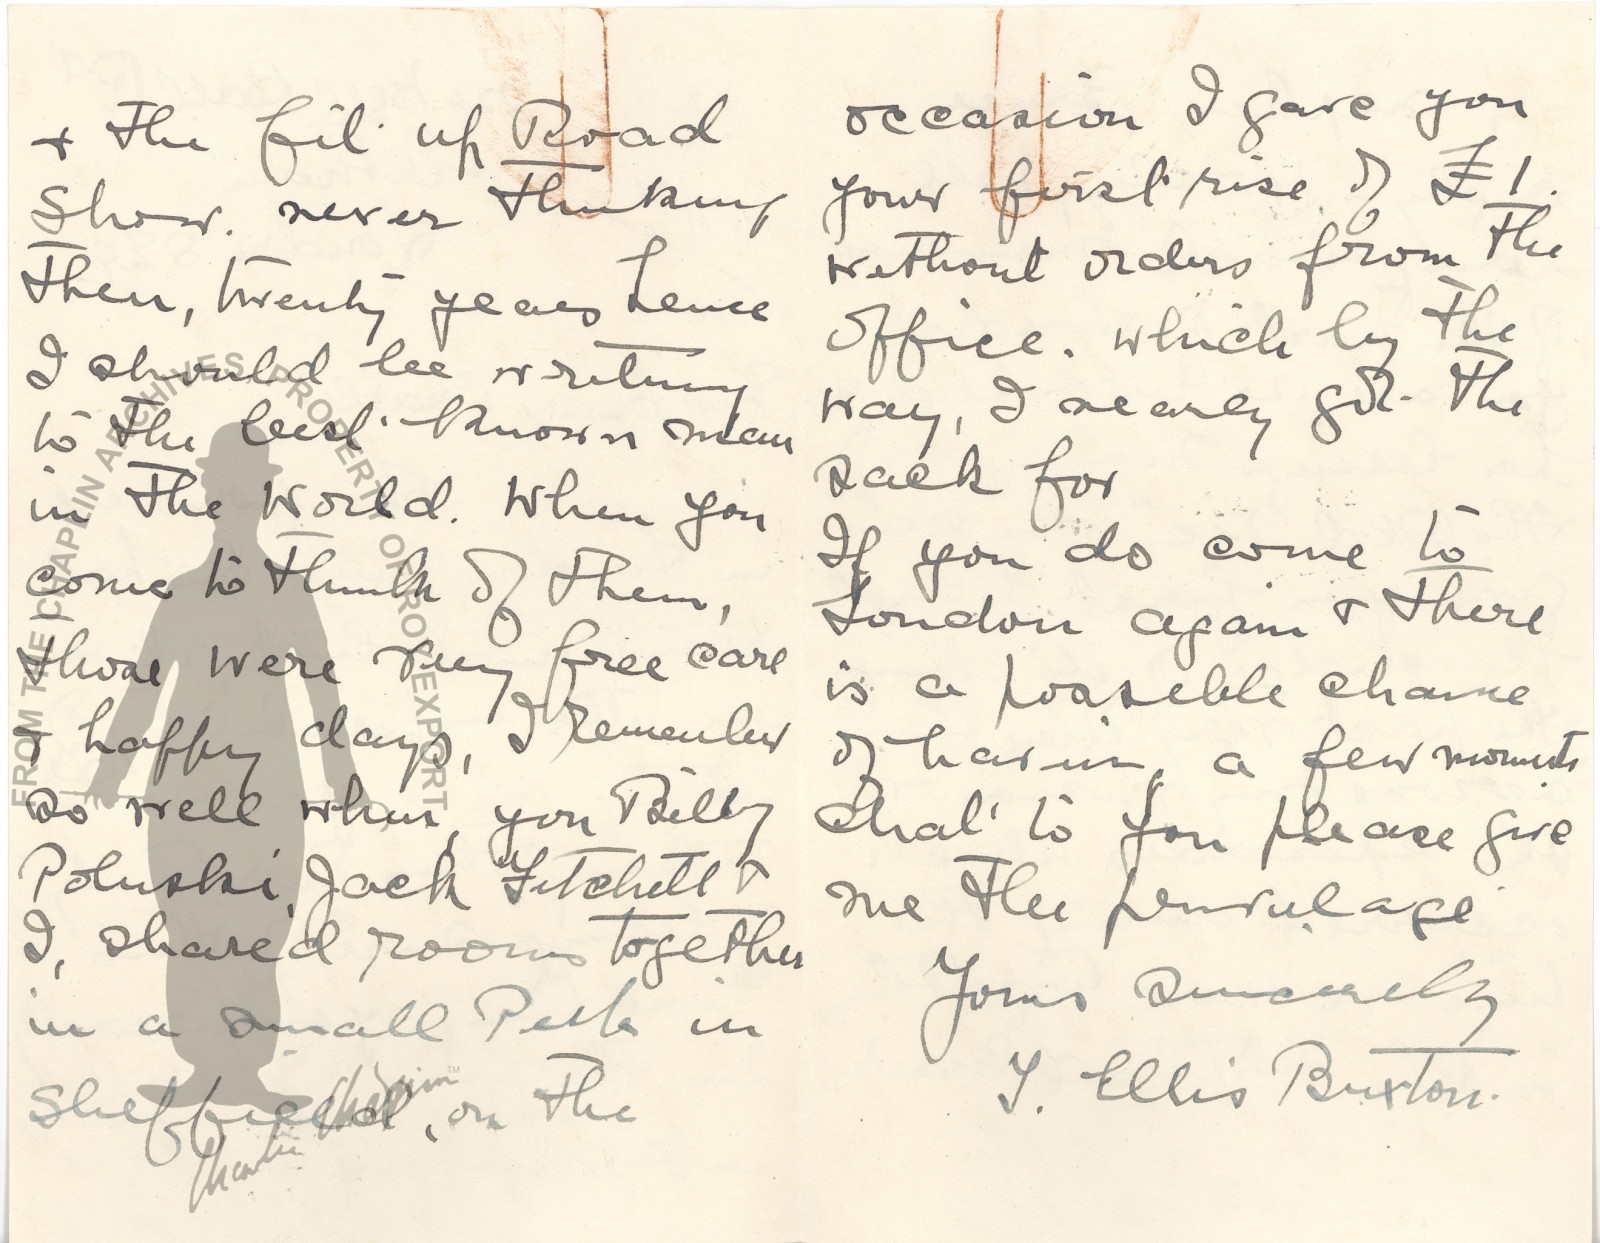 & the fit up Road
Show. never thinking
then, twenty years hence
I should be writing
to the best known man
in the World. When you
come to think of them,
those were very free care
& happy days, I remember
so well when, you Billy
Poluski, Jack Fitchett &
I, shared rooms together
in a small Pub in
Sheffield, on the
occasion I gave you
your first rise of £1.
without orders from the
office. which by the
way, I nearly got the
sack for
If you do come to
London again & there
is a posseble chance
of having a few moments
chat to you please give
me the privilage
Yours sincerely
Ellis Buxton.
FROM THE CHAPLIN ARCHIVES / PROPERTY OF ROY EXPORT
Charlie Chaplin™